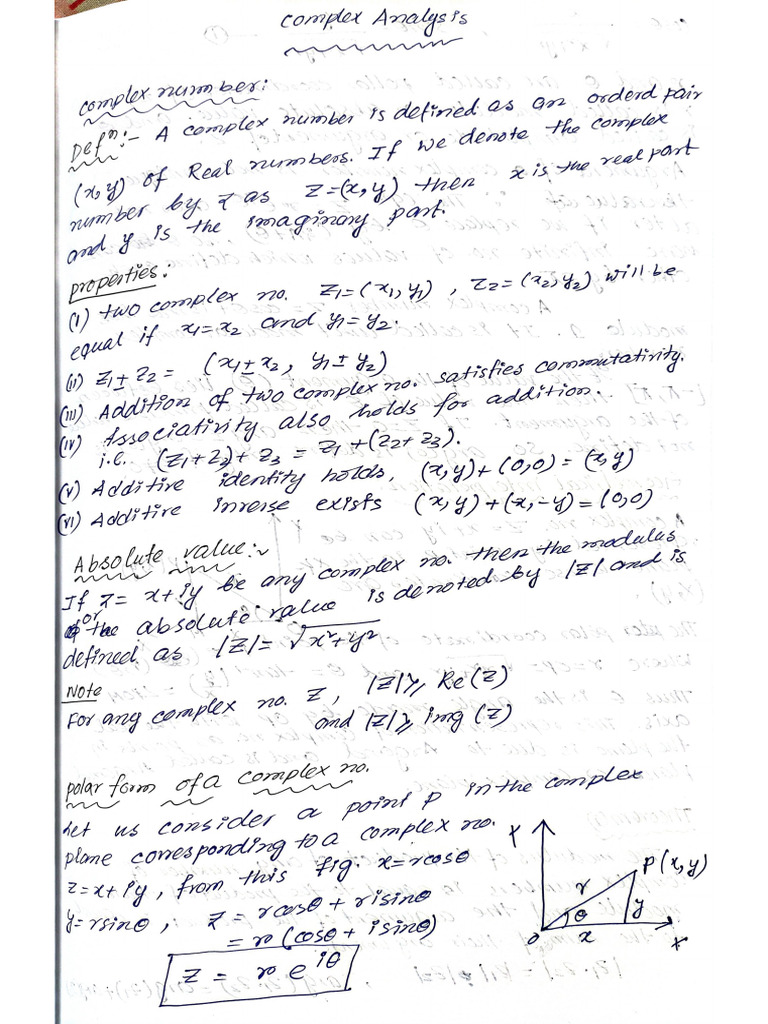 Complex Analysis
complex number:
Defⁿ:- A complex number is defined as an orderd pair
(x,y) of Real numbers. If we denote the complex
number by z as z=(x,y) then x is the real part
and y is the imaginary part.
properties:
(i) two complex no. z1=(x1,y1), z2=(x2,y2) will be
equal if x1=x2 and y1=y2.
(ii) z1±z2 = (x1±x2, y1±y2)
(iii) Addition of two complex no. satisfies commutativity.
(iv) Associativity also holds for addition.
i.e. (z1+z2)+z3 = z1+(z2+z3).
(v) Additive identity holds, (x,y)+(0,0)=(x,y)
(vi) Additive inverse exists (x,y)+(x,-y)=(0,0)
Absolute value:~
If z= x+iy be any complex no. then the modulus
or the absolute value is denoted by |z| and is
defined as |z|=√x²+y²
Note
For any complex no. z, |z|≥ Re(z)
and |z|≥ img(z)
polar form of a complex no.
Let us consider a point P in the complex
plane corresponding to a complex no.
z=x+iy, from this fig. x=rcosθ
y=rsinθ, z = rcosθ + risinθ
= r(cosθ + isinθ)
z = r e^{iθ}
Y
P(x,y)
r
θ
y
O
x
X